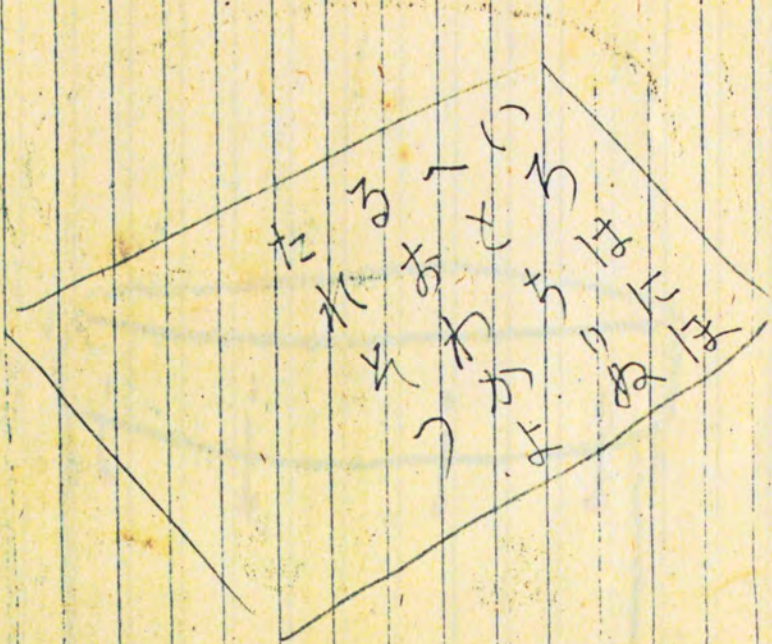 いろはにほ
へとちりぬ
るおわかよ
たれそつ